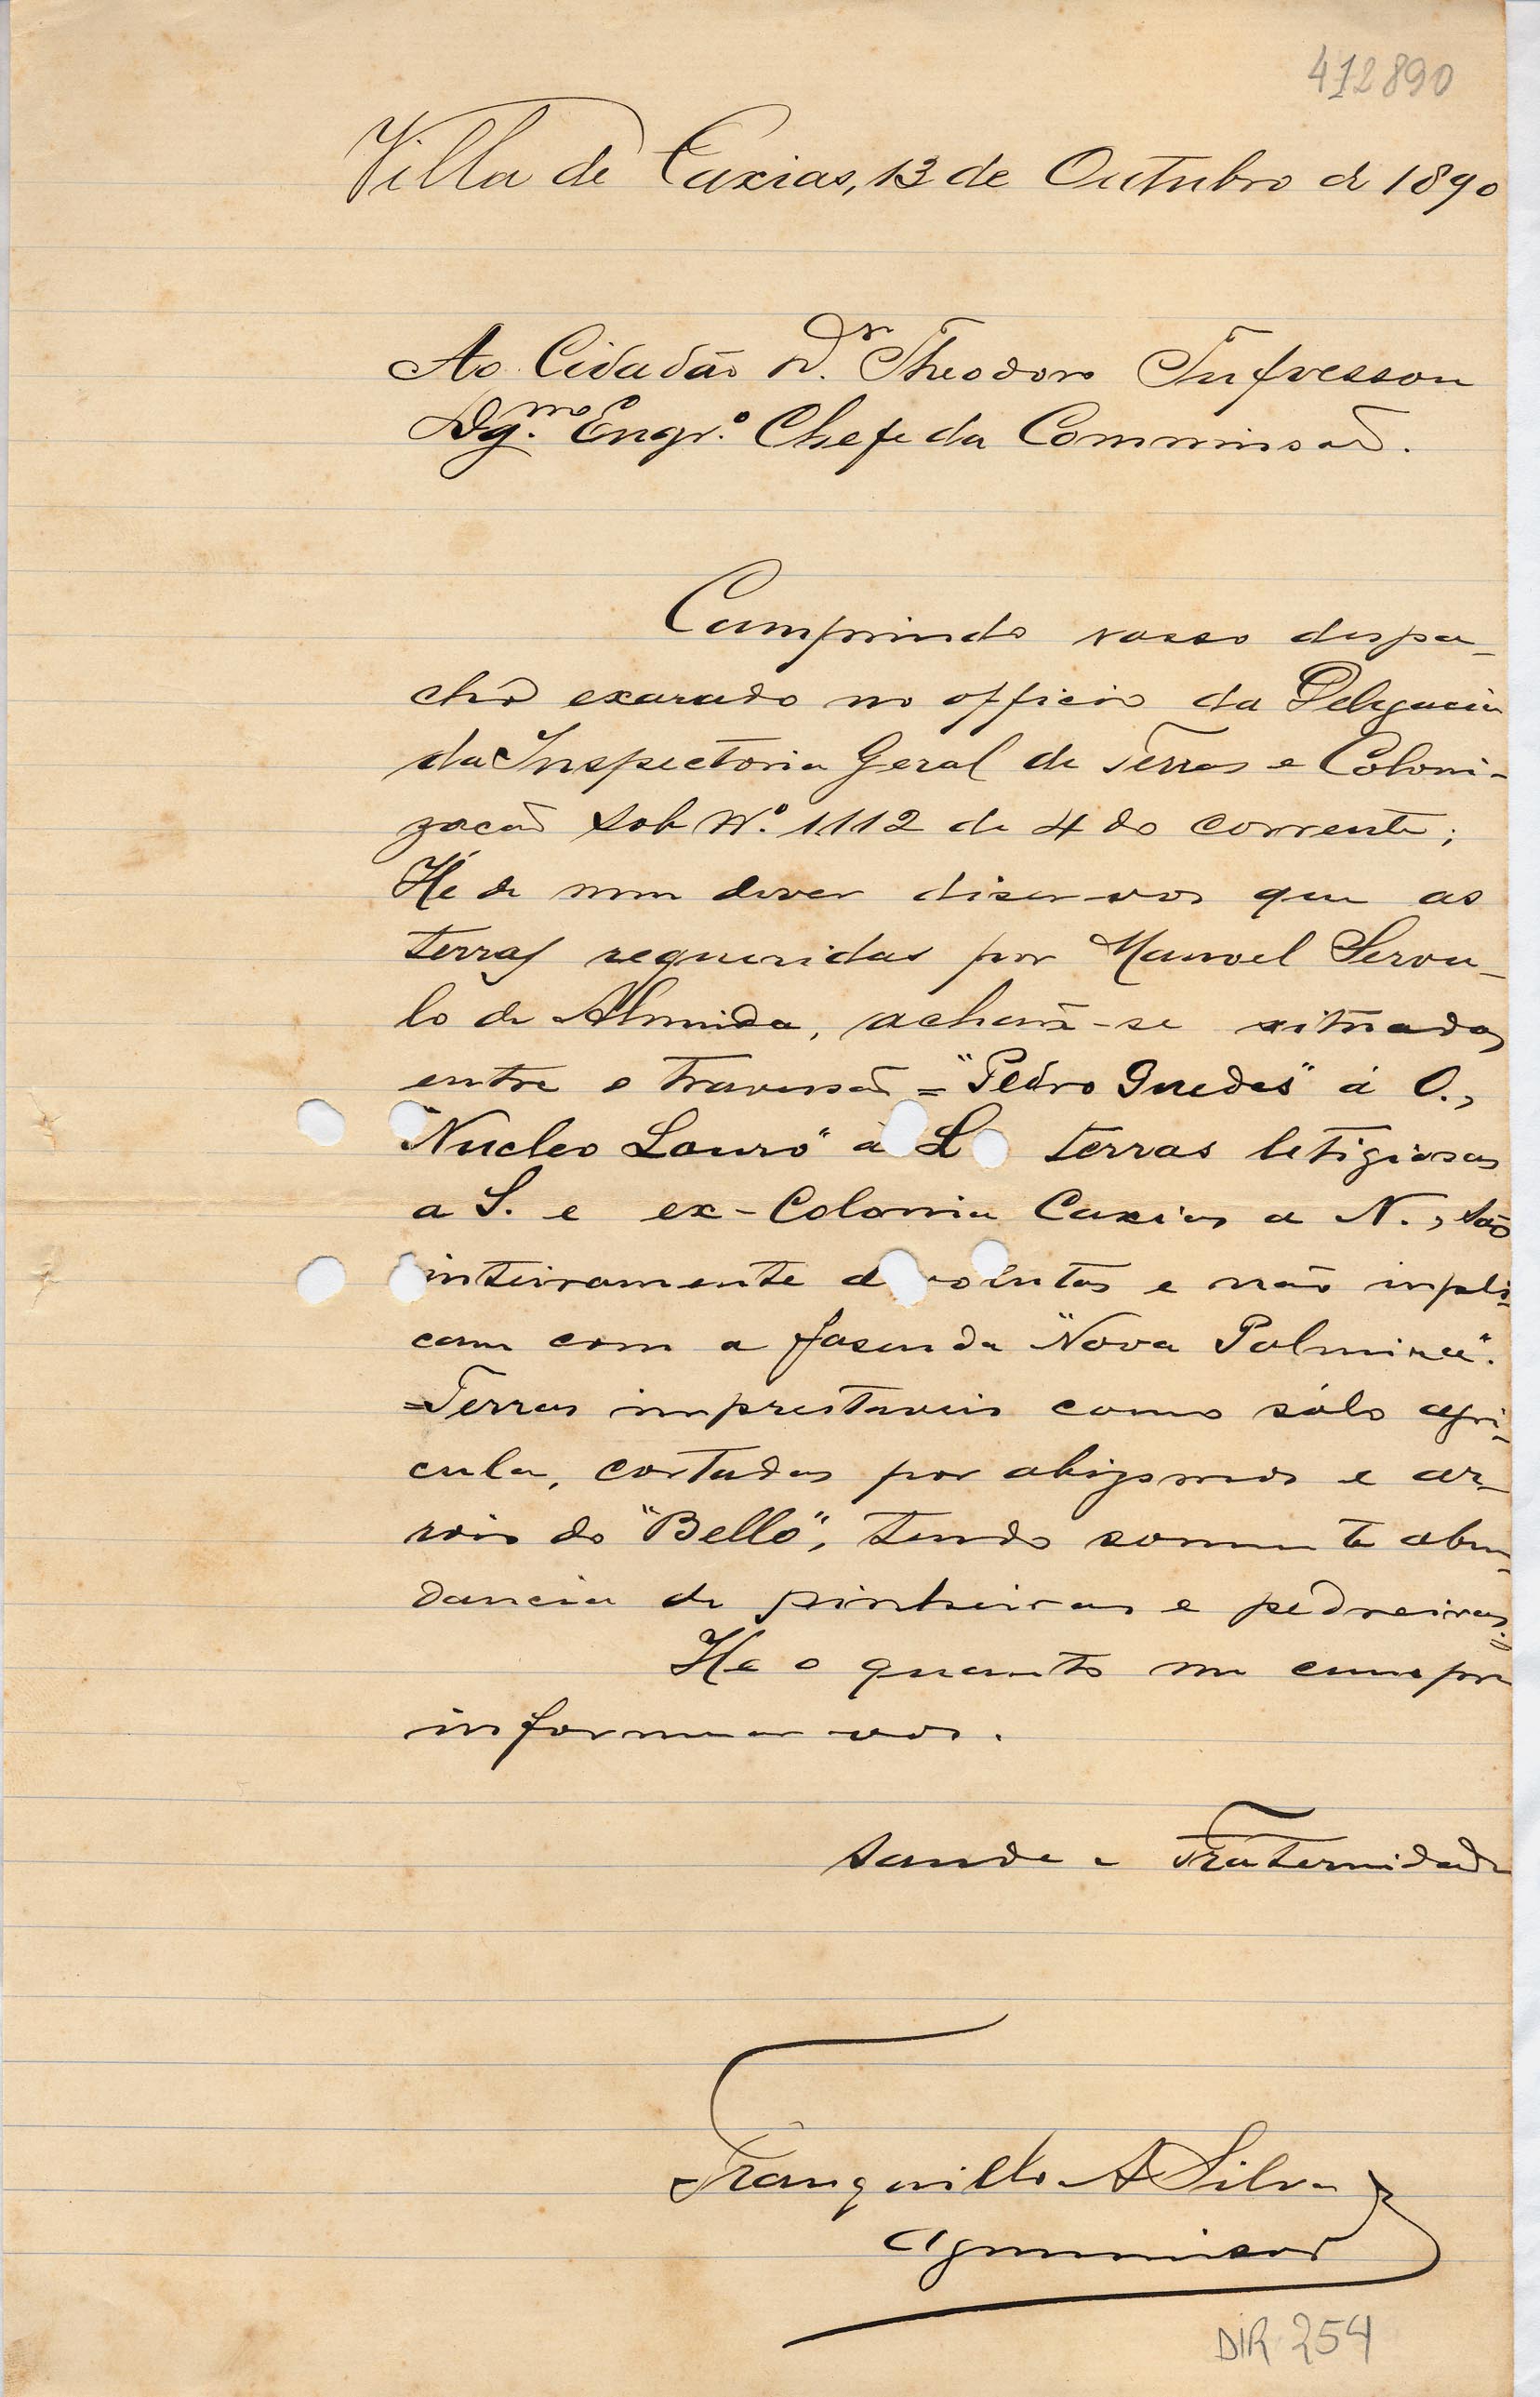 412890
Villa de Caxias, 13 de Outubro de 1890
Ao Cidadão Dr. Theodoro Tufvesson
Dg.mo Engr.º Chefe da Commissão.
Cumprindo vosso despa-
cho exarado no officio da Delegacia
da Inspectoria Geral de Terras e Coloni-
zacão sob Nº. 1112 de 4 do corrente;
Hé de meu dever diser-vos que as
terras requeridas por Manoel Servu-
lo de Almeida, achão-se situadas
entre o travessão = "Pedro Guedes" á O.,
"Nucleo Louro" á L terras letigiosas
a S. e ex-Colonia Caxias a N., são
inteiramente devolutas e não impli-
cam com a fasenda "Nova Palmira".
=Terras imprestaveis como sólo agri-
cula, cortadas por abysmos e ar-
roio do "Bello", tendo somente abun-
dancia de pinheiros e pedreiras.=
He o quanto me cumpre
informar-vos.
Saude e Fraternidade
Tranquillo A Silva
Agrimensor
DIR 254